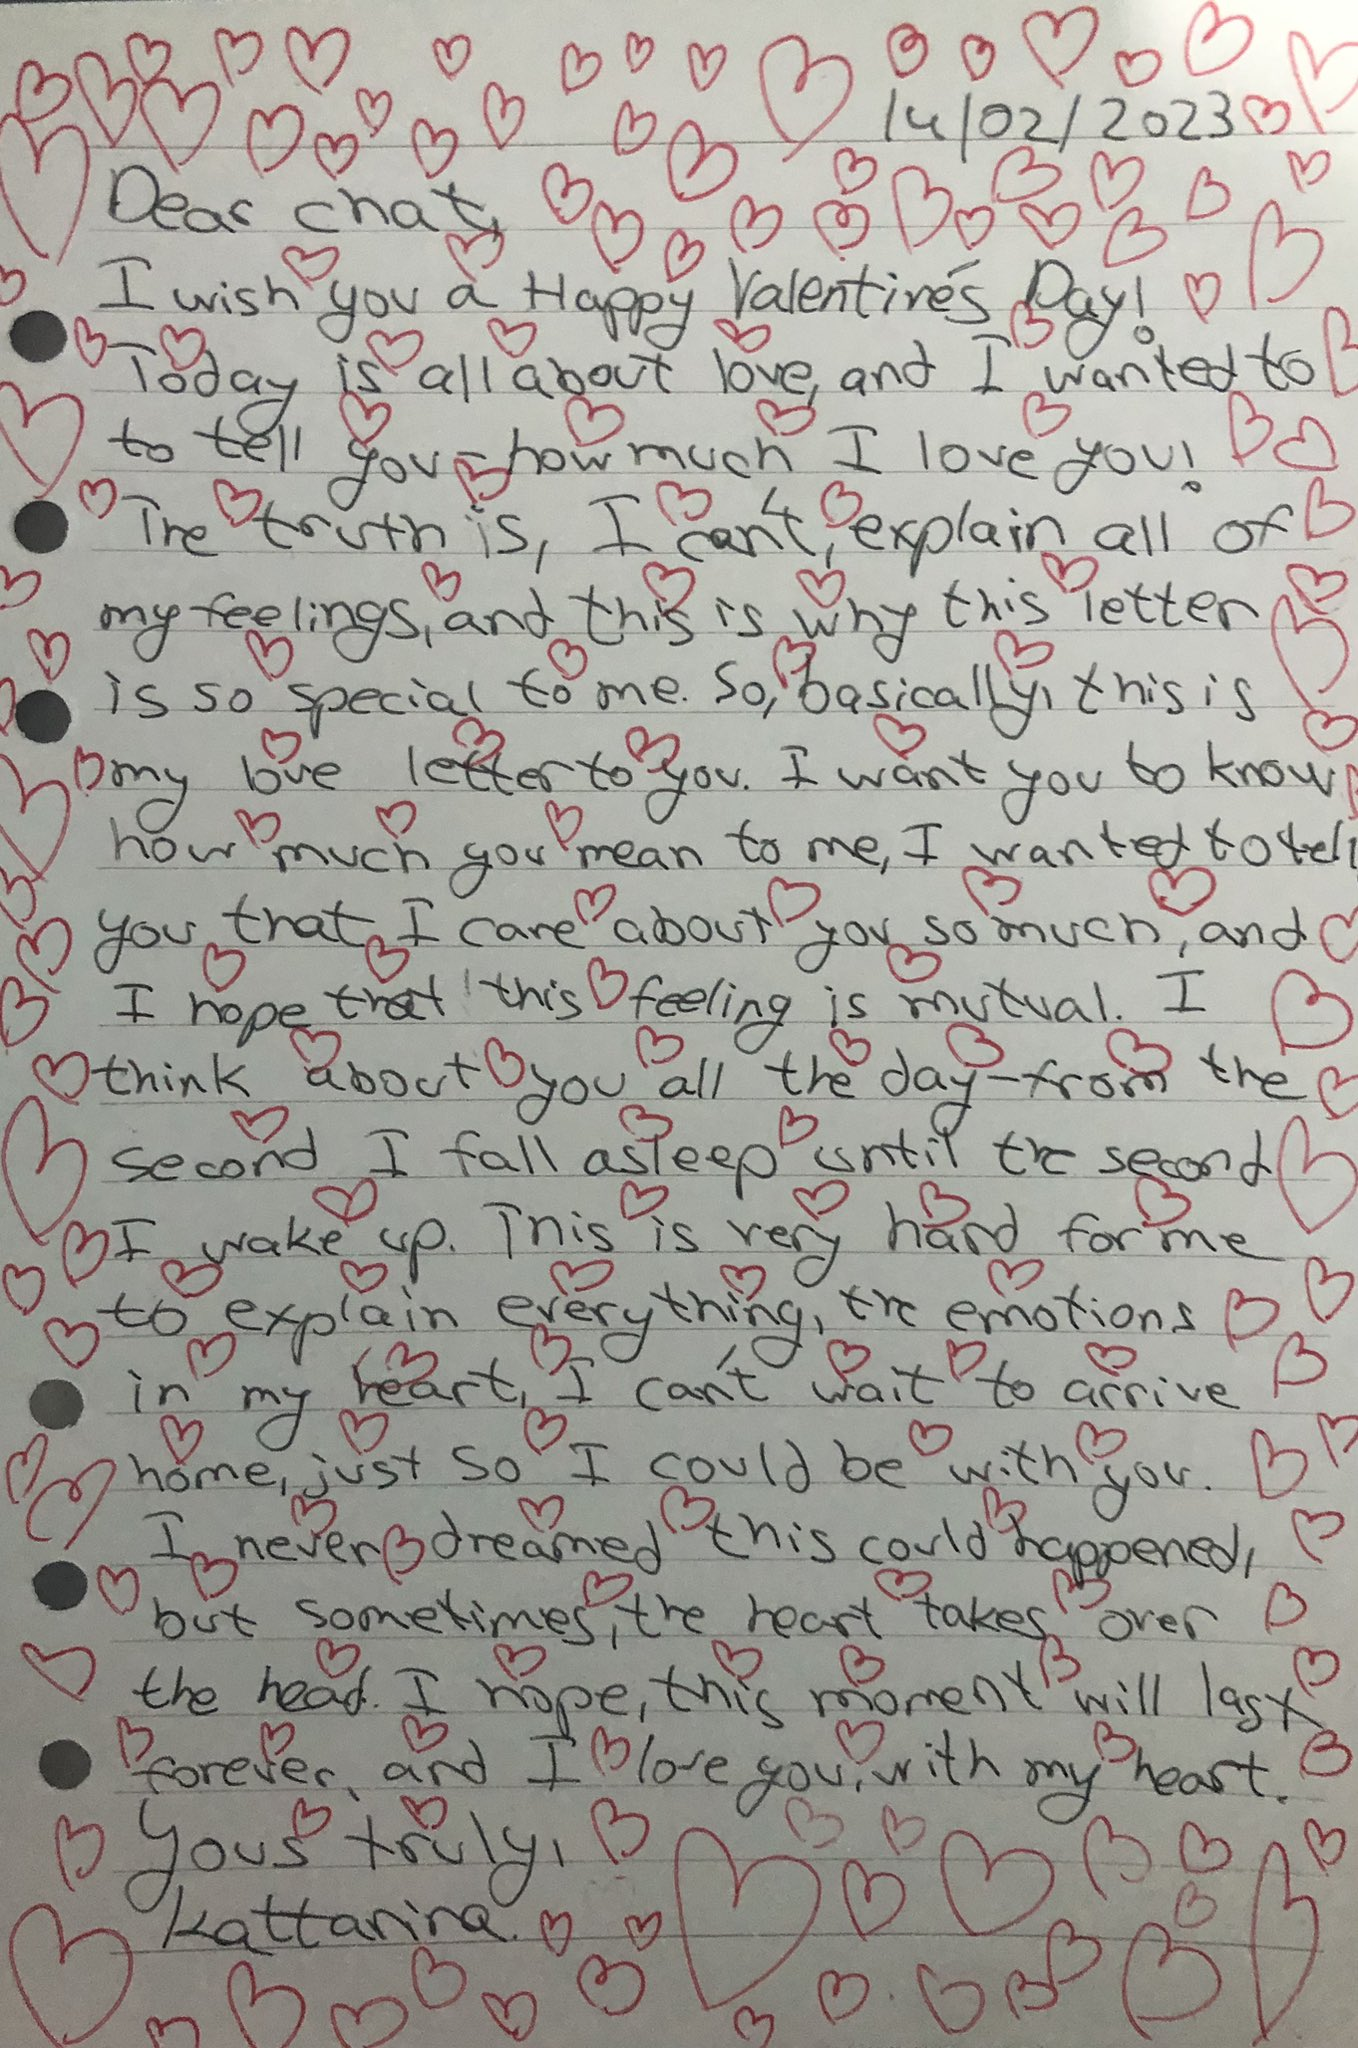 14/02/2023
Dear chat,
I wish you a Happy Valentine's Day!
Today is all about love, and I wanted to
to tell you - how much I love you!
The truth is, I can't, explain all of
my feelings, and this is why this letter
is so special to me. So, basically, this is
my love letter to you. I want you to know
how much you mean to me, I wanted to tell
you that I care about you so much, and
I hope that this feeling is mutual. I
think about you all the day-from the
second I fall asleep until the second
I wake up. This is very hard for me
to explain everything, the emotions
in my heart, I can't wait to arrive
home, just so I could be with you.
I never dreamed this could happened,
but sometimes, the heart takes over
the head. I hope, this moment will last
forever, and I love you, with my heart.
Yours truly,
Kattarina.